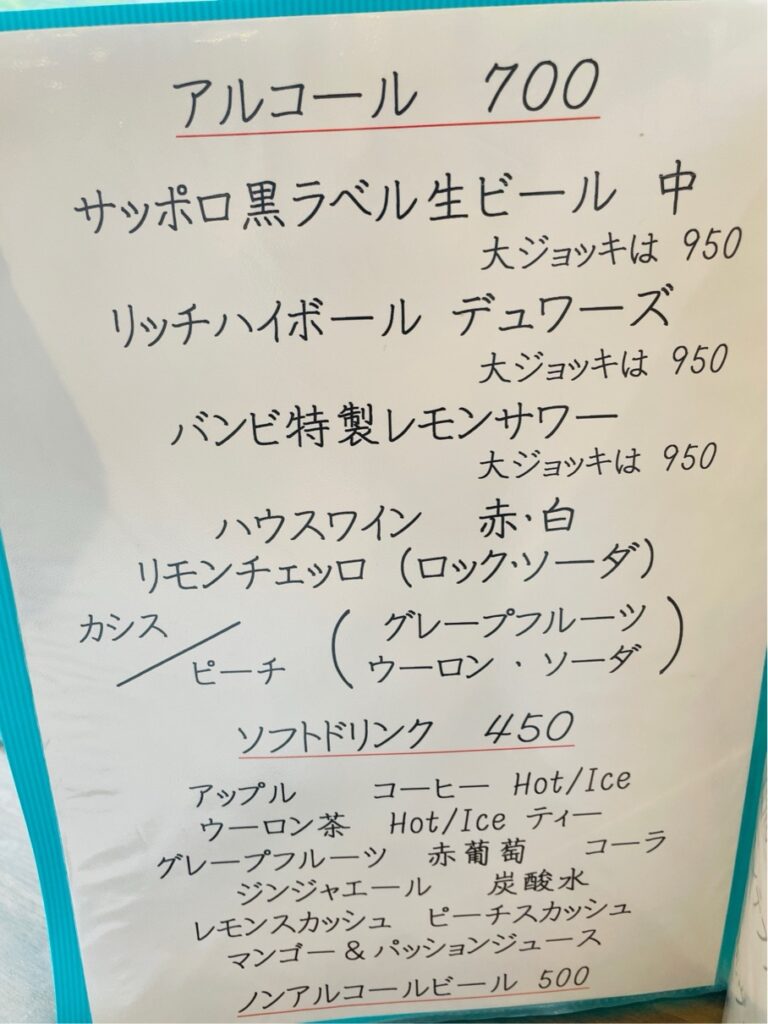 アルコール 700
サッポロ黒ラベル生ビール 中
大ジョッキは 950
リッチハイボール デュワーズ
大ジョッキは 950
バンビ特製レモンサワー
大ジョッキは 950
ハウスワイン 赤・白
リモンチェッロ (ロック・ソーダ)
カシス/ピーチ (グレープフルーツ
ウーロン ・ ソーダ)
ソフトドリンク 450
アップル コーヒー Hot/Ice
ウーロン茶 Hot/Ice ティー
グレープフルーツ 赤葡萄 コーラ
ジンジャエール 炭酸水
レモンスカッシュ ピーチスカッシュ
マンゴー&パッションジュース
ノンアルコールビール 500